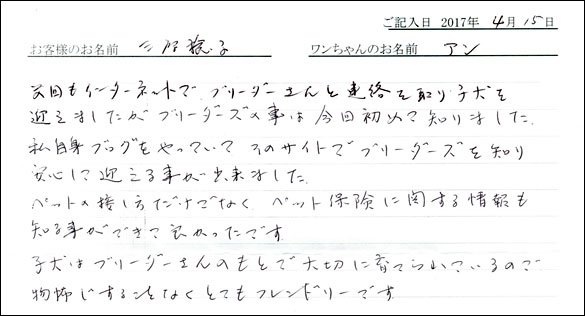 ご記入日 2017年 4月15日
お客様のお名前 ワンちゃんのお名前 アン
前回もインターネットで、ブリーダーさんと連絡を取り子犬を
迎えましたがブリーダーズの事は今回初めて知りました。
私自身ブログをやっていて そのサイトでブリーダーズを知り
安心して迎える事が出来ました。
ペットの接し方だけでなく、ペット保険に関する情報も
知る事ができて良かったです。
子犬はブリーダーさんのもとで大切に育てられているので
物怖じすることなくとてもフレンドリーです。